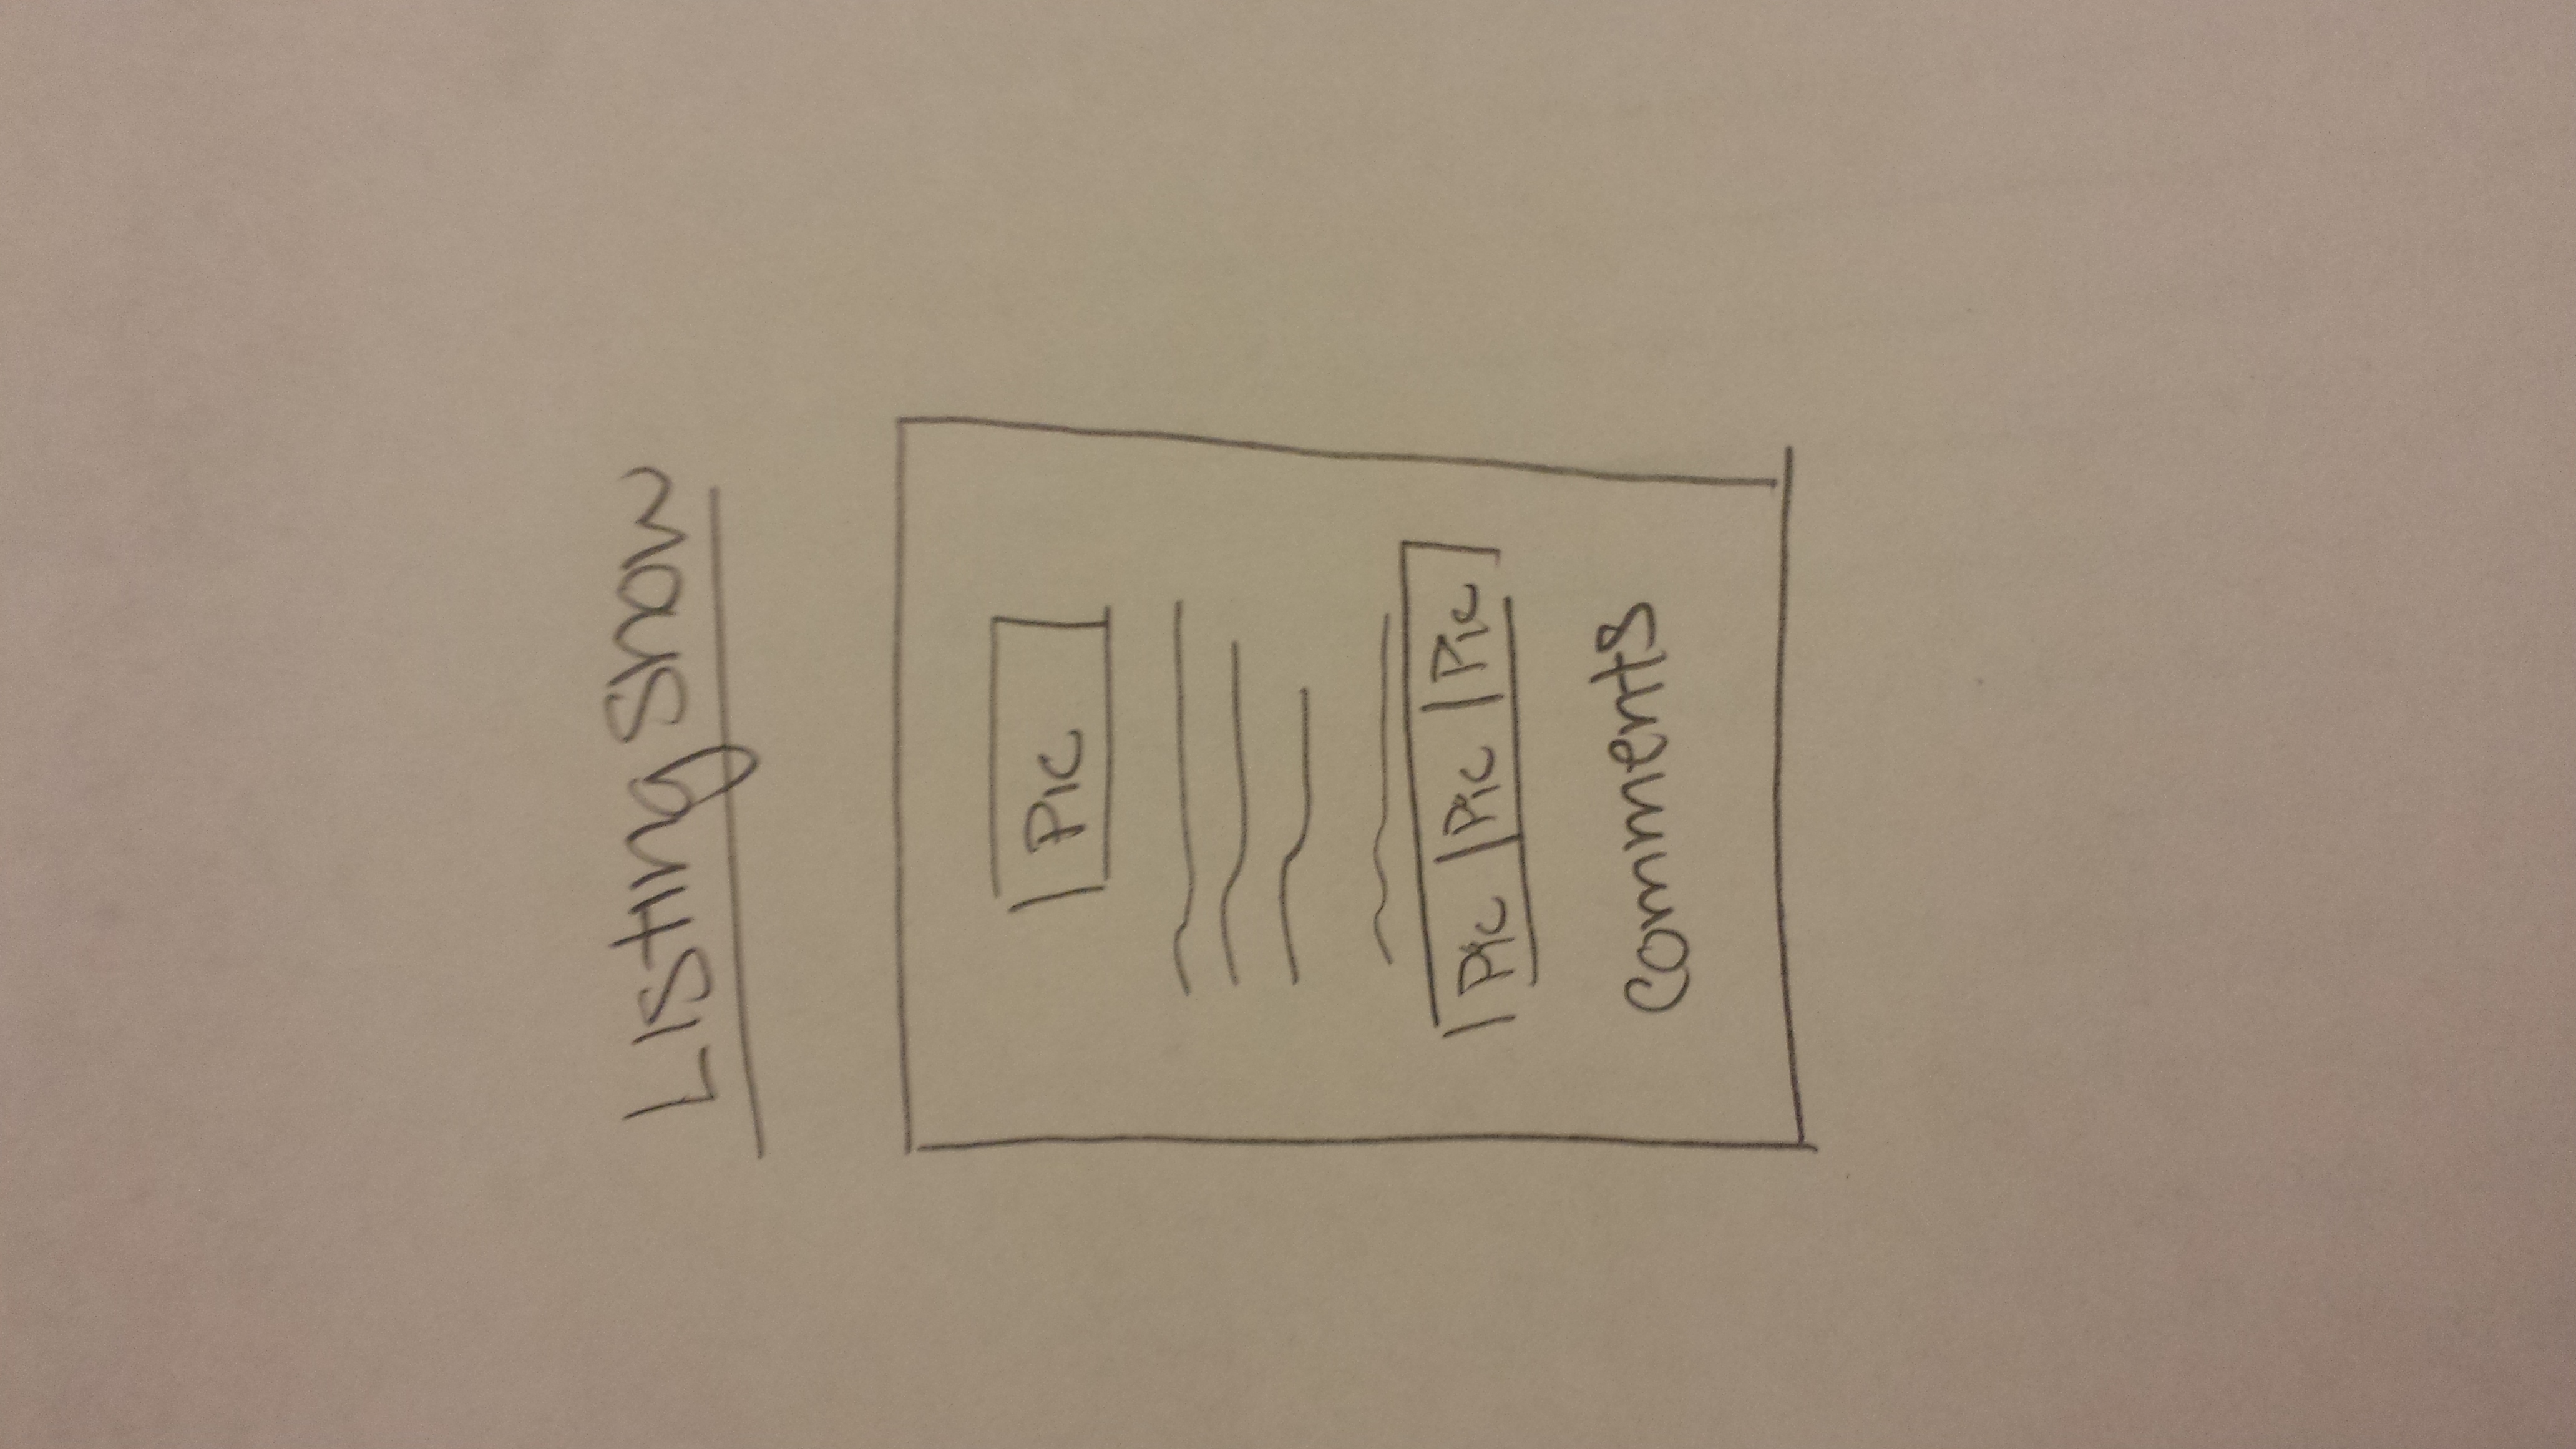 Listing Show
Pic
Pic Pic Pic
Comments